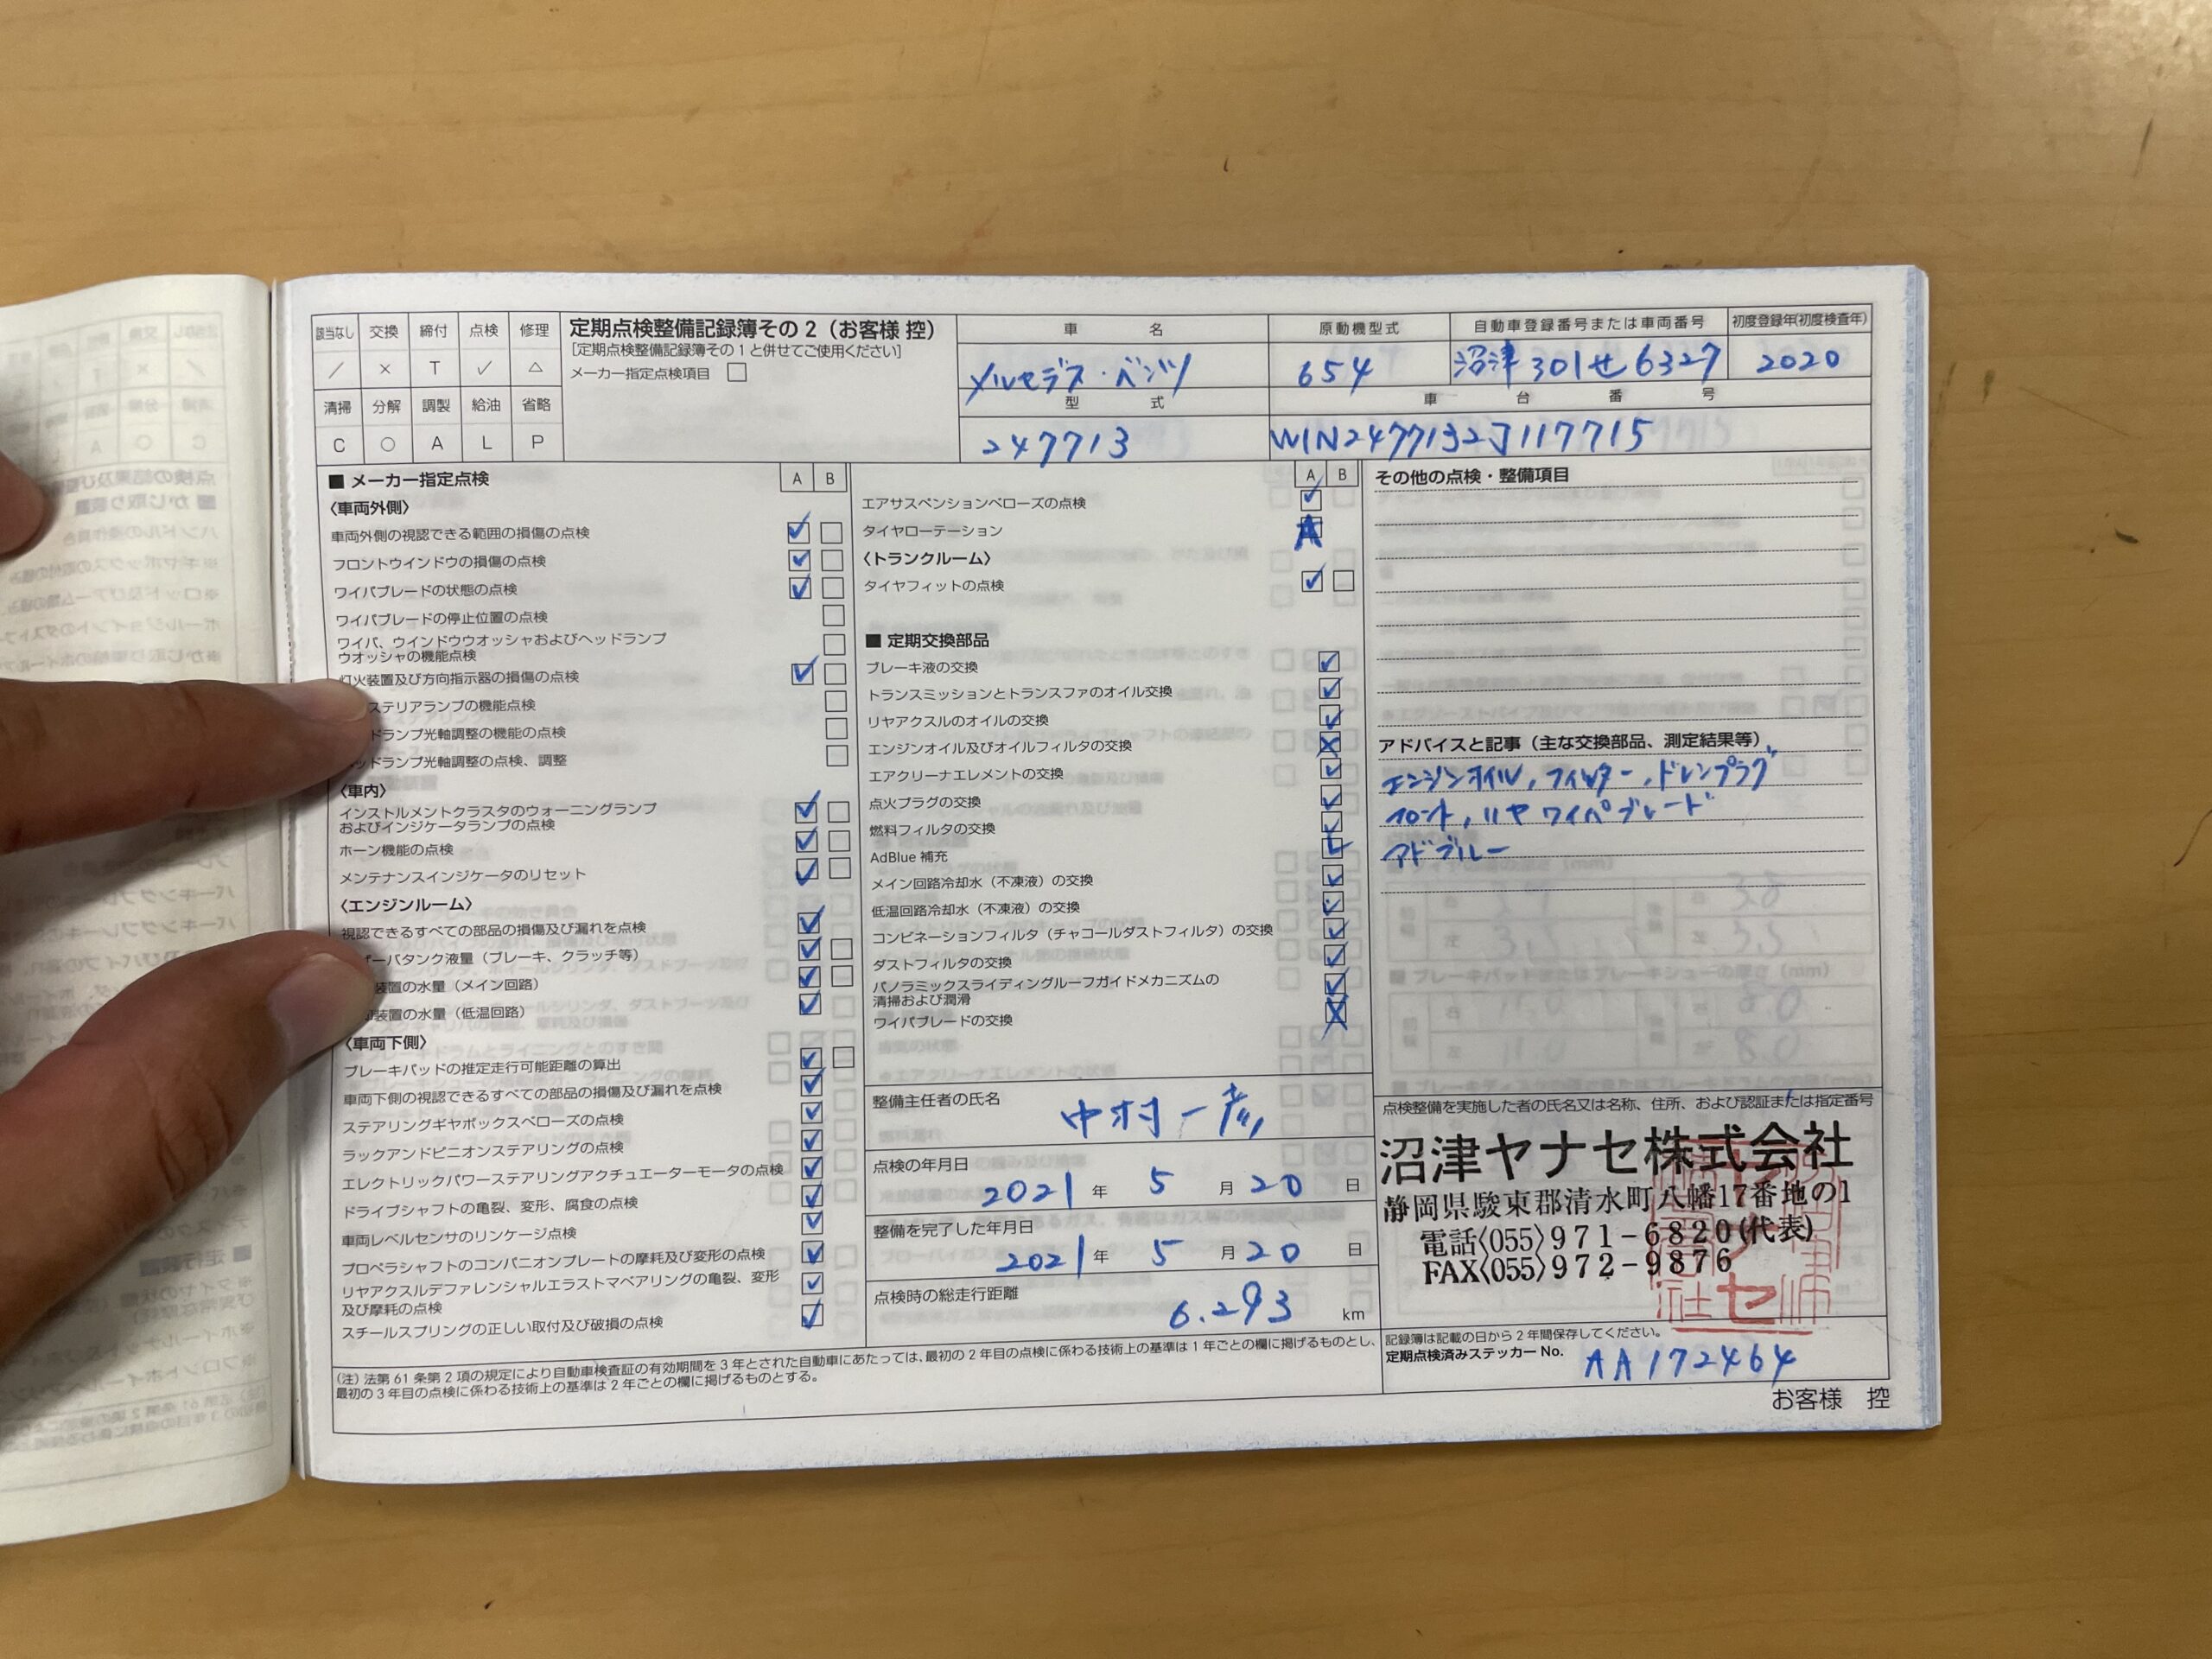 該当なし 交換 締付 点検 修理
／ × T ✓ △
清掃 分解 調製 給油 省略
C ○ A L P
定期点検整備記録簿その2（お客様 控）
［定期点検整備記録簿その1と併せてご使用ください］
メーカー指定点検項目 □
車名
メルセデス・ベンツ
原動機型式
654
自動車登録番号または車両番号
沼津 301 せ 6327
初度登録年(初度検査年)
2020
型式
247713
車台番号
W1N2477132J117715
■ メーカー指定点検 A B
〈車両外側〉
車両外側の視認できる範囲の損傷の点検
フロントウインドウの損傷の点検
ワイパブレードの状態の点検
ワイパブレードの停止位置の点検
ワイパ、ウインドウウオッシャおよびヘッドランプ
ウオッシャの機能点検
灯火装置及び方向指示器の損傷の点検
ステリアランプの機能点検
ドランプ光軸調整の機能の点検
ッドランプ光軸調整の点検、調整
〈車内〉
インストルメントクラスタのウォーニングランプ
およびインジケータランプの点検
ホーン機能の点検
メンテナンスインジケータのリセット
〈エンジンルーム〉
視認できるすべての部品の損傷及び漏れを点検
ーバタンク液量（ブレーキ、クラッチ等）
装置の水量（メイン回路）
装置の水量（低温回路）
〈車両下側〉
ブレーキパッドの推定走行可能距離の算出
車両下側の視認できるすべての部品の損傷及び漏れを点検
ステアリングギヤボックスベローズの点検
ラックアンドピニオンステアリングの点検
エレクトリックパワーステアリングアクチュエーターモータの点検
ドライブシャフトの亀裂、変形、腐食の点検
車両レベルセンサのリンケージ点検
プロペラシャフトのコンパニオンプレートの摩耗及び変形の点検
リヤアクスルデファレンシャルエラストマベアリングの亀裂、変形
及び摩耗の点検
スチールスプリングの正しい取付及び破損の点検
A B
エアサスペンションベローズの点検
タイヤローテーション A
〈トランクルーム〉
タイヤフィットの点検
■ 定期交換部品
ブレーキ液の交換
トランスミッションとトランスファのオイル交換
リヤアクスルのオイルの交換
エンジンオイル及びオイルフィルタの交換
エアクリーナエレメントの交換
点火プラグの交換
燃料フィルタの交換
AdBlue 補充 L
メイン回路冷却水（不凍液）の交換
低温回路冷却水（不凍液）の交換
コンビネーションフィルタ（チャコールダストフィルタ）の交換
ダストフィルタの交換
パノラミックスライディングルーフガイドメカニズムの
清掃および潤滑
ワイパブレードの交換
整備主任者の氏名
中村 一彦
点検の年月日
2021 年 5 月 20 日
整備を完了した年月日
2021 年 5 月 20 日
点検時の総走行距離
6.293 km
その他の点検・整備項目
アドバイスと記事（主な交換部品、測定結果等）
エンジンオイル, フィルター, ドレンプラグ
フロント, リヤ ワイパブレード
アドブルー
点検整備を実施した者の氏名又は名称、住所、および認証または指定番号
沼津ヤナセ株式会社
静岡県駿東郡清水町八幡17番地の1
電話〈055〉971-6820(代表)
FAX〈055〉972-9876
記録簿は記載の日から2年間保存してください。
定期点検済みステッカー No. AA172464
（注）法第61条第2項の規定により自動車検査証の有効期間を3年とされた自動車にあたっては、最初の2年目の点検に係わる技術上の基準は1年ごとの欄に掲げるものとし、
最初の3年目の点検に係わる技術上の基準は2年ごとの欄に掲げるものとする。
お客様 控